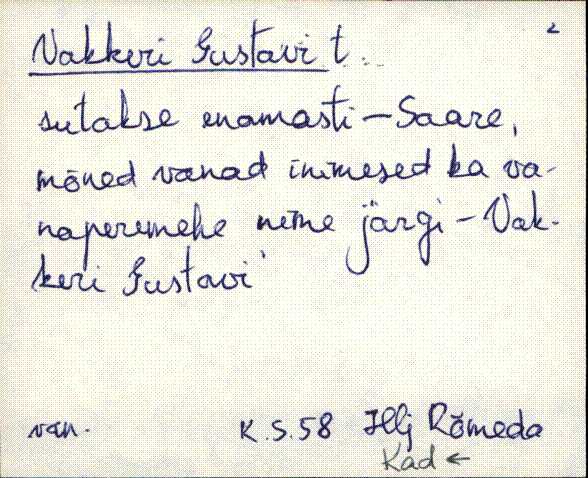 Vakkeri Gustavi t.
sutakse enamasti - Saare,
mõned vanad inimesed ka va-
naperemehe nime järgi - Vak-
keri Gustavi
van. K.S. 58 Hlj Rõmeda
Kad ←